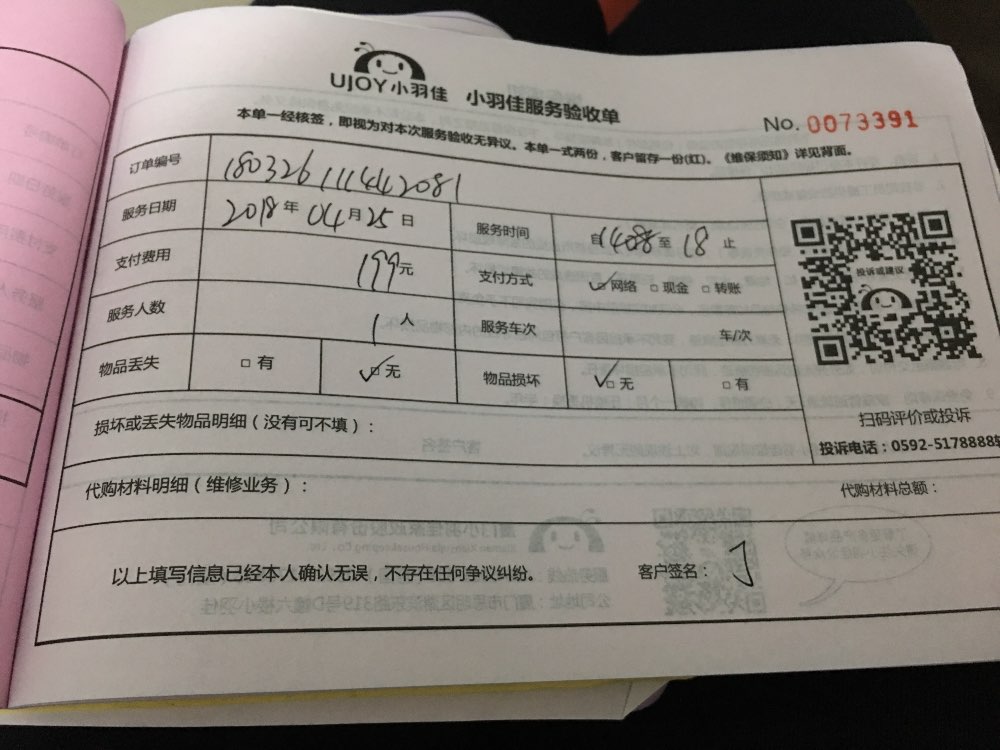 UJOY小羽佳 小羽佳服务验收单
No. 0073391
本单一经核签，即视为对本次服务验收无异议。本单一式两份，客户留存一份(红)。《维保须知》详见背面。
订单编号 180326111442081
服务日期 2018年04月25日 服务时间 自 至18止
支付费用 199元 支付方式 ☑网络 □现金 □转账
服务人数 1人 服务车次 车/次
物品丢失 □有 ☑无 物品损坏 ☑无 □有
投诉或建议
扫码评价或投诉
投诉电话：0592-5178888转
损坏或丢失物品明细（没有可不填）：
代购材料明细（维修业务）： 代购材料总额：
以上填写信息已经本人确认无误，不存在任何争议纠纷。 客户签名：